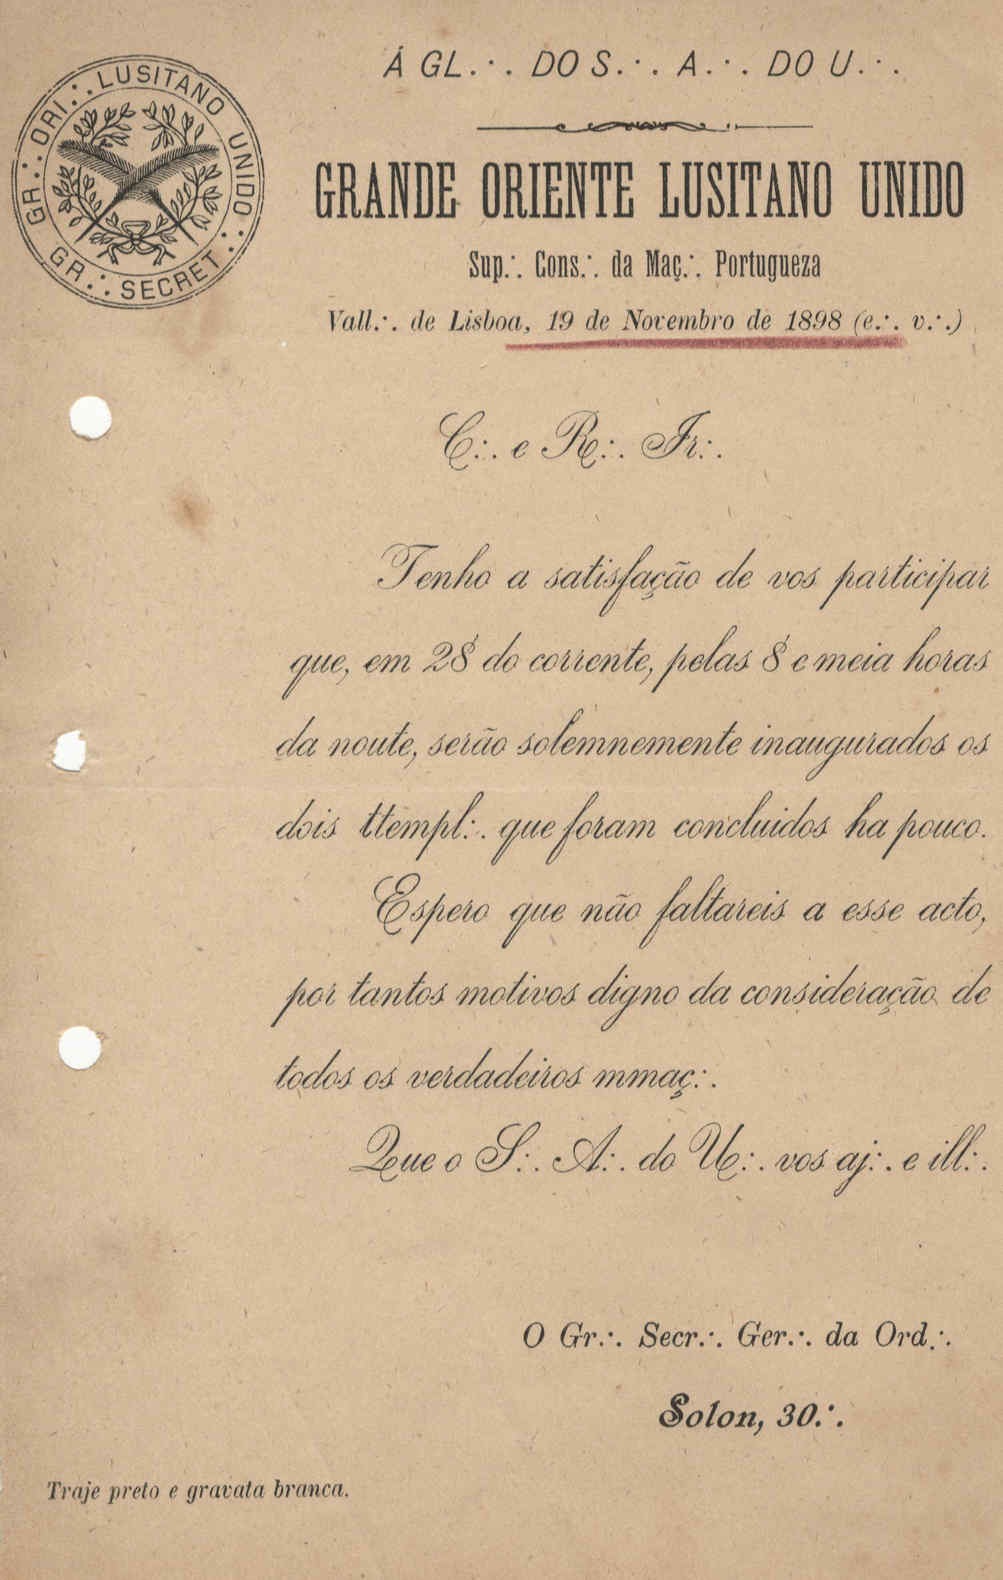 GR∴ ORI∴ LUSITANO UNIDO∴
GR∴ SECRET∴
Á GL∴ DO S∴ A∴ DO U∴
GRANDE ORIENTE LUSITANO UNIDO
Sup∴ Cons∴ da Maç∴ Portugueza
Vall∴ de Lisboa, 19 de Novembro de 1898 (e∴ v∴)
C∴ e R∴ Ir∴
Tenho a satisfação de vos participar
que, em 28 do corrente, pelas 8 e meia horas
da noute, serão solemnemente inaugurados os
dois ttempl∴ que foram concluidos ha pouco.
Espero que não faltareis a esse acto,
por tantos motivos digno da consideração de
todos os verdadeiros mmaç∴
Que o S∴ A∴ do U∴ vos aj∴ e ill∴
O Gr∴ Secr∴ Ger∴ da Ord∴
Solon, 30∴
Traje preto e gravata branca.